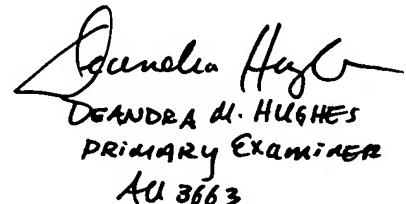 Deandra Hughes
DEANDRA M. HUGHES
PRIMARY EXAMINER
AU 3663